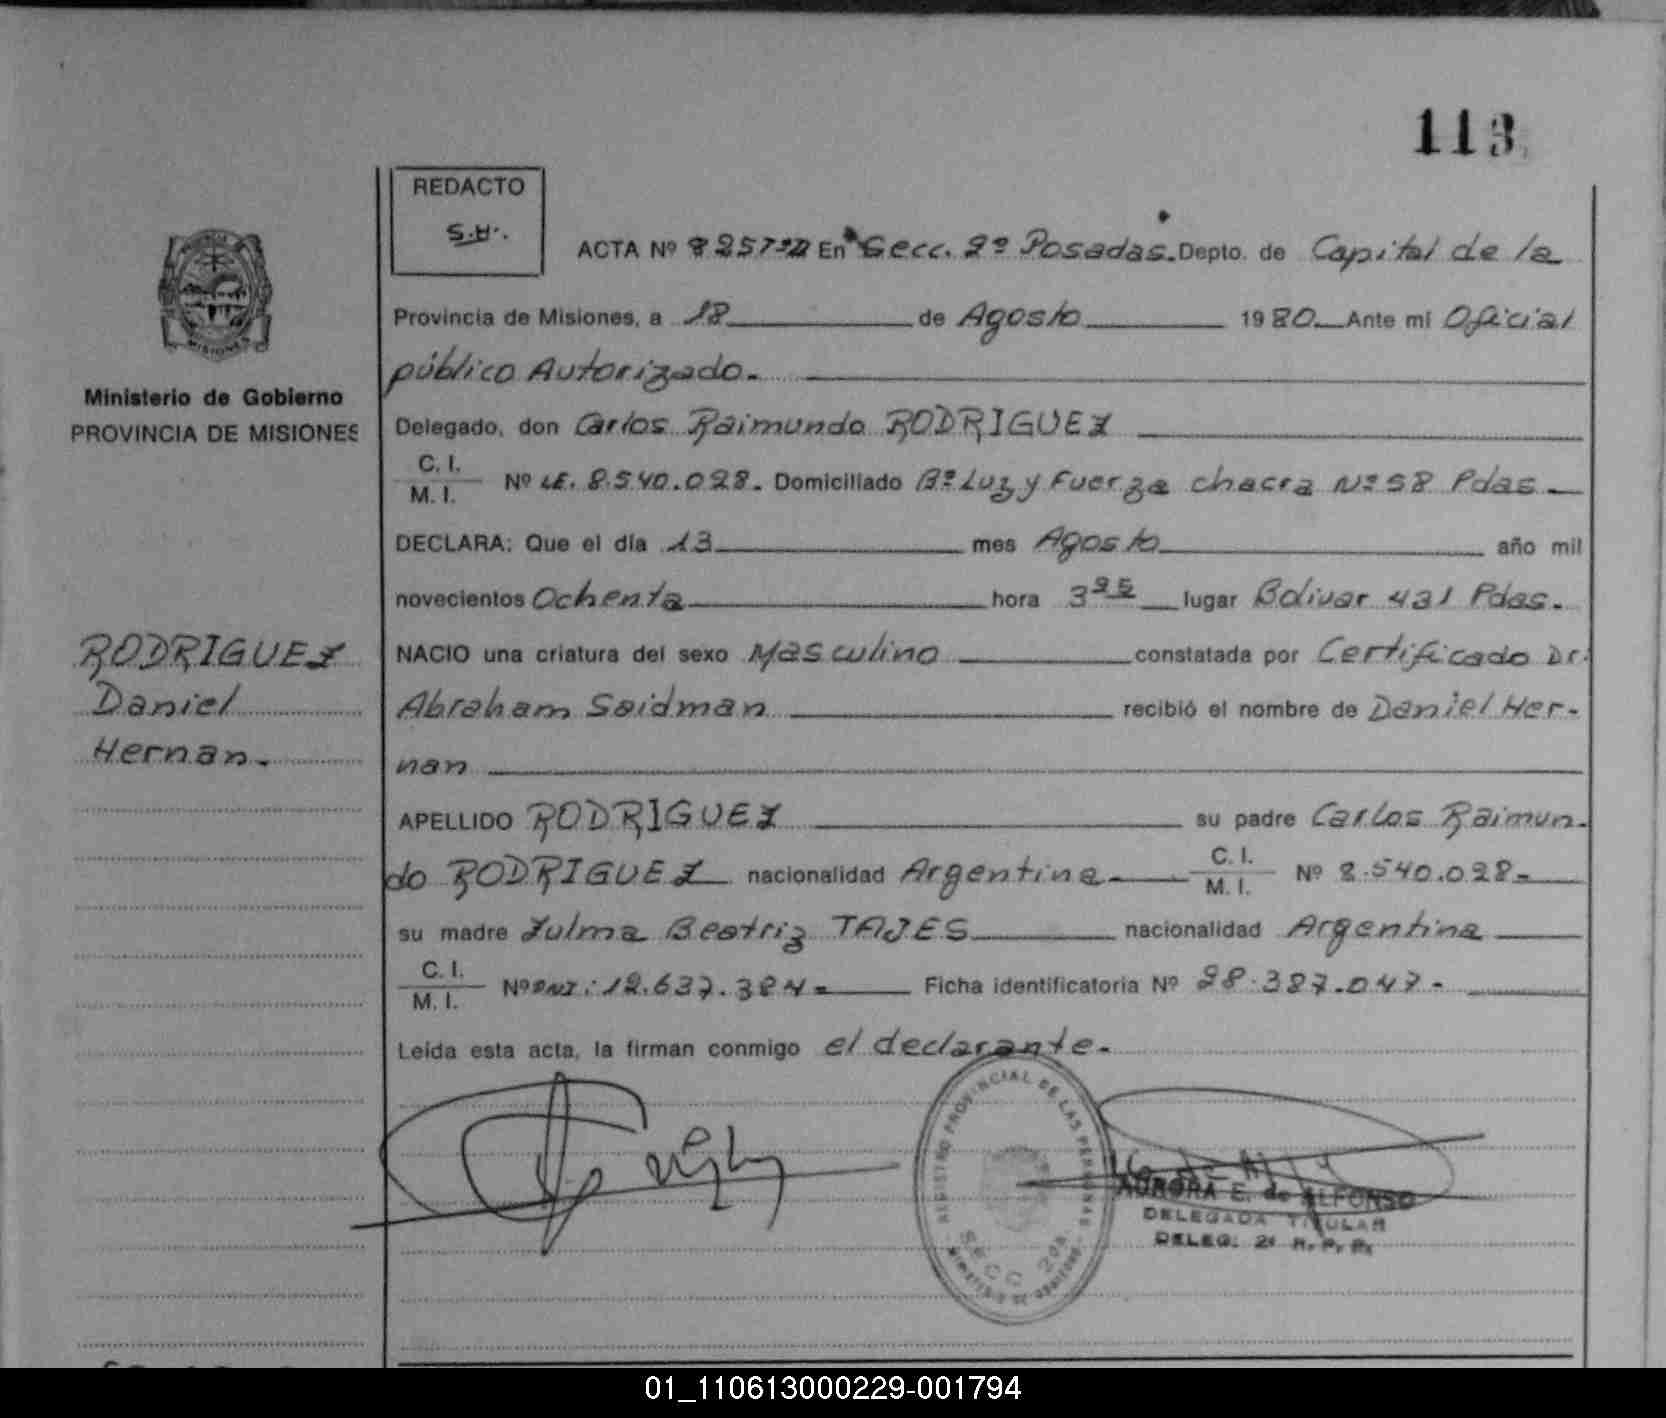 113
REDACTO
S.H.
ACTA Nº 8257-2 En Secc. 2º Posadas. Depto. de Capital de la
Provincia de Misiones, a 18 de Agosto 1980 Ante mi Oficial
público Autorizado.
MISIONES
Ministerio de Gobierno
PROVINCIA DE MISIONES
Delegado, don Carlos Raimundo RODRIGUEZ
C. I.
M. I. Nº LE. 8.540.028. Domiciliado Bº Luz y Fuerza chacra Nº 58 Pdas.
DECLARA: Que el día 13 mes Agosto año mil
novecientos Ochenta hora 3 25 lugar Bolivar 431 Pdas.
RODRIGUEZ
Daniel
Hernan.
NACIO una criatura del sexo Masculino constatada por Certificado Dr.
Abraham Saidman recibió el nombre de Daniel Her-
nan
APELLIDO RODRIGUEZ su padre Carlos Raimun-
do RODRIGUEZ nacionalidad Argentina C. I.
M. I. Nº 8.540.028
su madre Zulma Beatriz TAJES nacionalidad Argentina
C. I.
M. I. Nº DNI: 12.637.384 Ficha identificatoria Nº 28.387.047.
Leída esta acta, la firman conmigo el declarante.
REGISTRO PROVINCIAL DE LAS PERSONAS
SECC 2da
AURORA E. de ALFONSO
DELEGADA TITULAR
DELEG. 2ª R. P. P.
01_110613000229-001794